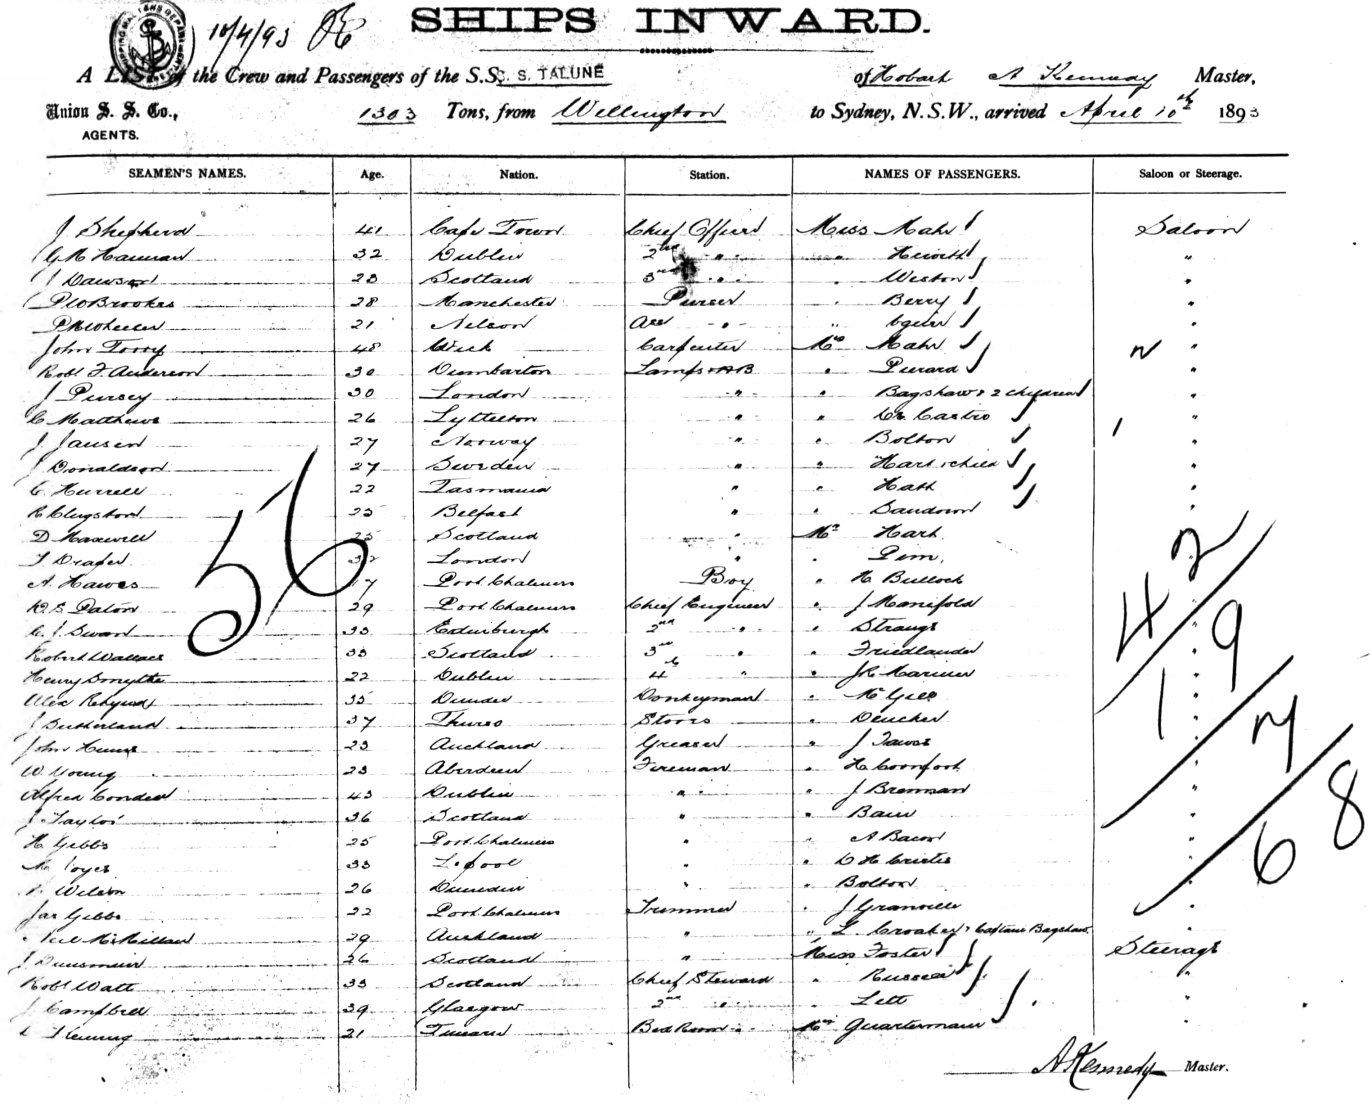 10/4/93
SHIPS INWARD.
A LIST of the Crew and Passengers of the S.S. S. S. TALUNE of Hobart A Kennedy Master,
Union S. S. Co., 1303 Tons, from Wellington to Sydney, N.S.W., arrived April 10th 1893
AGENTS.
SEAMEN'S NAMES. Age. Nation. Station. NAMES OF PASSENGERS. Saloon or Steerage.
J Shepherd 41 Cape Town Chief Officer Miss Mahr Saloon
32 Dublin 2nd " " "
J Dawson 23 Scotland 3rd " " Weston "
P W Brookes 28 Manchester Purser " Berry "
P Wheeler 21 Nelson Ass " " "
John Torry 48 Wick Carpenter Mrs Mahr "
Robt F. Anderson 30 Dumbarton Lamps & AB " "
J Pursey 30 London " " Bagshaw & 2 children "
C Matthews 26 Lyttelton " " De Castro "
J Jansen 27 Norway " " Bolton "
J Donaldson 27 Sweden " " Hart & child "
C Hurrell 22 Tasmania " " "
R Clugston 25 Belfast " " "
D Maxwell 25 Scotland " Mr Hart
T Draper 32 London " " Pim
A. Hawes 17 Port Chalmers Boy " H Bullock
56
R S Paton 29 Port Chalmers Chief Engineer " J Manifold
C. J. Swan 33 Edinburgh 2nd " " "
Robert Wallace 33 Scotland 3rd " " Friedlander "
Henry Smythe 22 Dublin 4th " " J R Mariner "
Alex 35 Dundee Donkeyman " McGill "
J Sutherland 37 Thurso Stores " Deucher "
John 23 Auckland Greaser " J Tawse "
W Young 23 Aberdeen Fireman " H Cornfoot "
Alfred Condell 43 Dublin " " J Brennan "
J Taylor 36 Scotland " " Bain "
H Gibbs 25 Port Chalmers " " A Bacon "
33 L'pool " "
Wilson 26 Dunedin " " Bolton "
Jas Gibbs 22 Port Chalmers Trimmer " J Granville "
Neil McMillan 29 Auckland " " L. Croaker & Captain Bagshaw
J Dunsmuir 26 Scotland " Miss Foster Steerage
Robt Watt 33 Scotland Chief Steward " Russell "
J Campbell 39 Glasgow 2nd " " Lett "
Fleming 21 Timaru Bed Room " Mrs Quartermain "
42
19
7
68
A Kennedy Master.